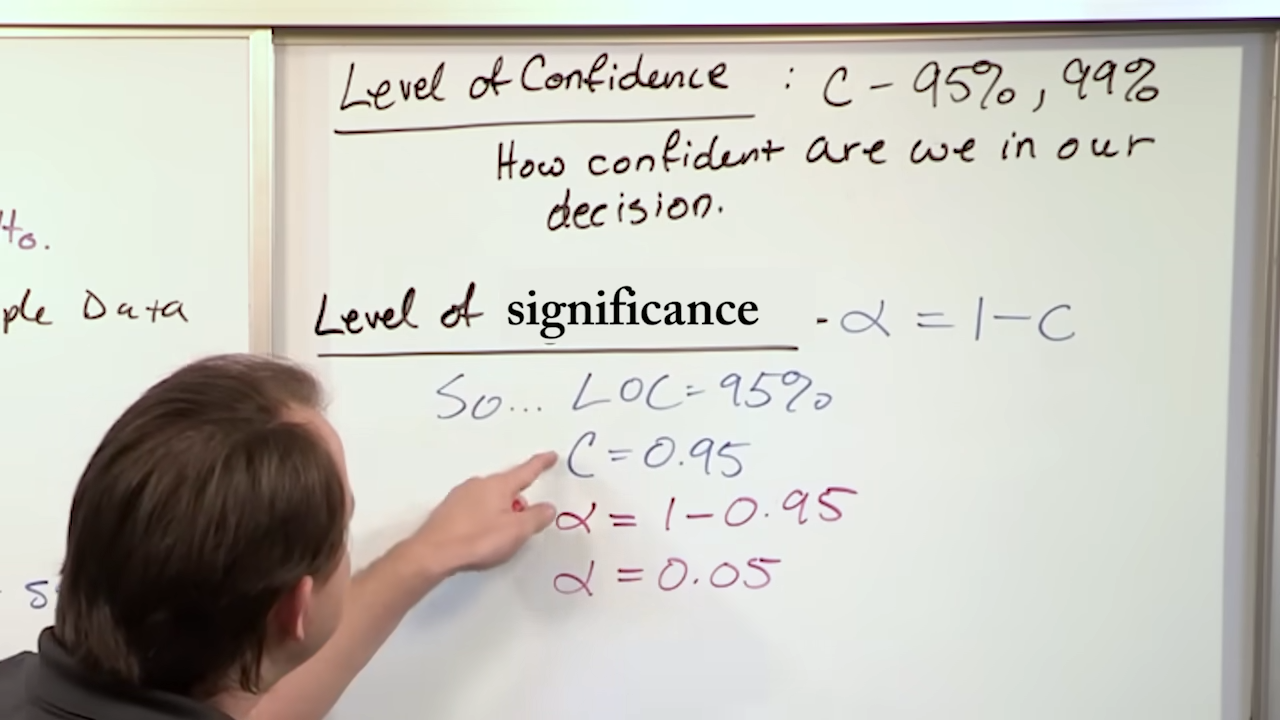 Level of Confidence : C - 95%, 99%
How confident are we in our
decision.
Level of significance - α = 1 - C
So... LOC = 95%
C = 0.95
α = 1 - 0.95
α = 0.05
H₀.
Data